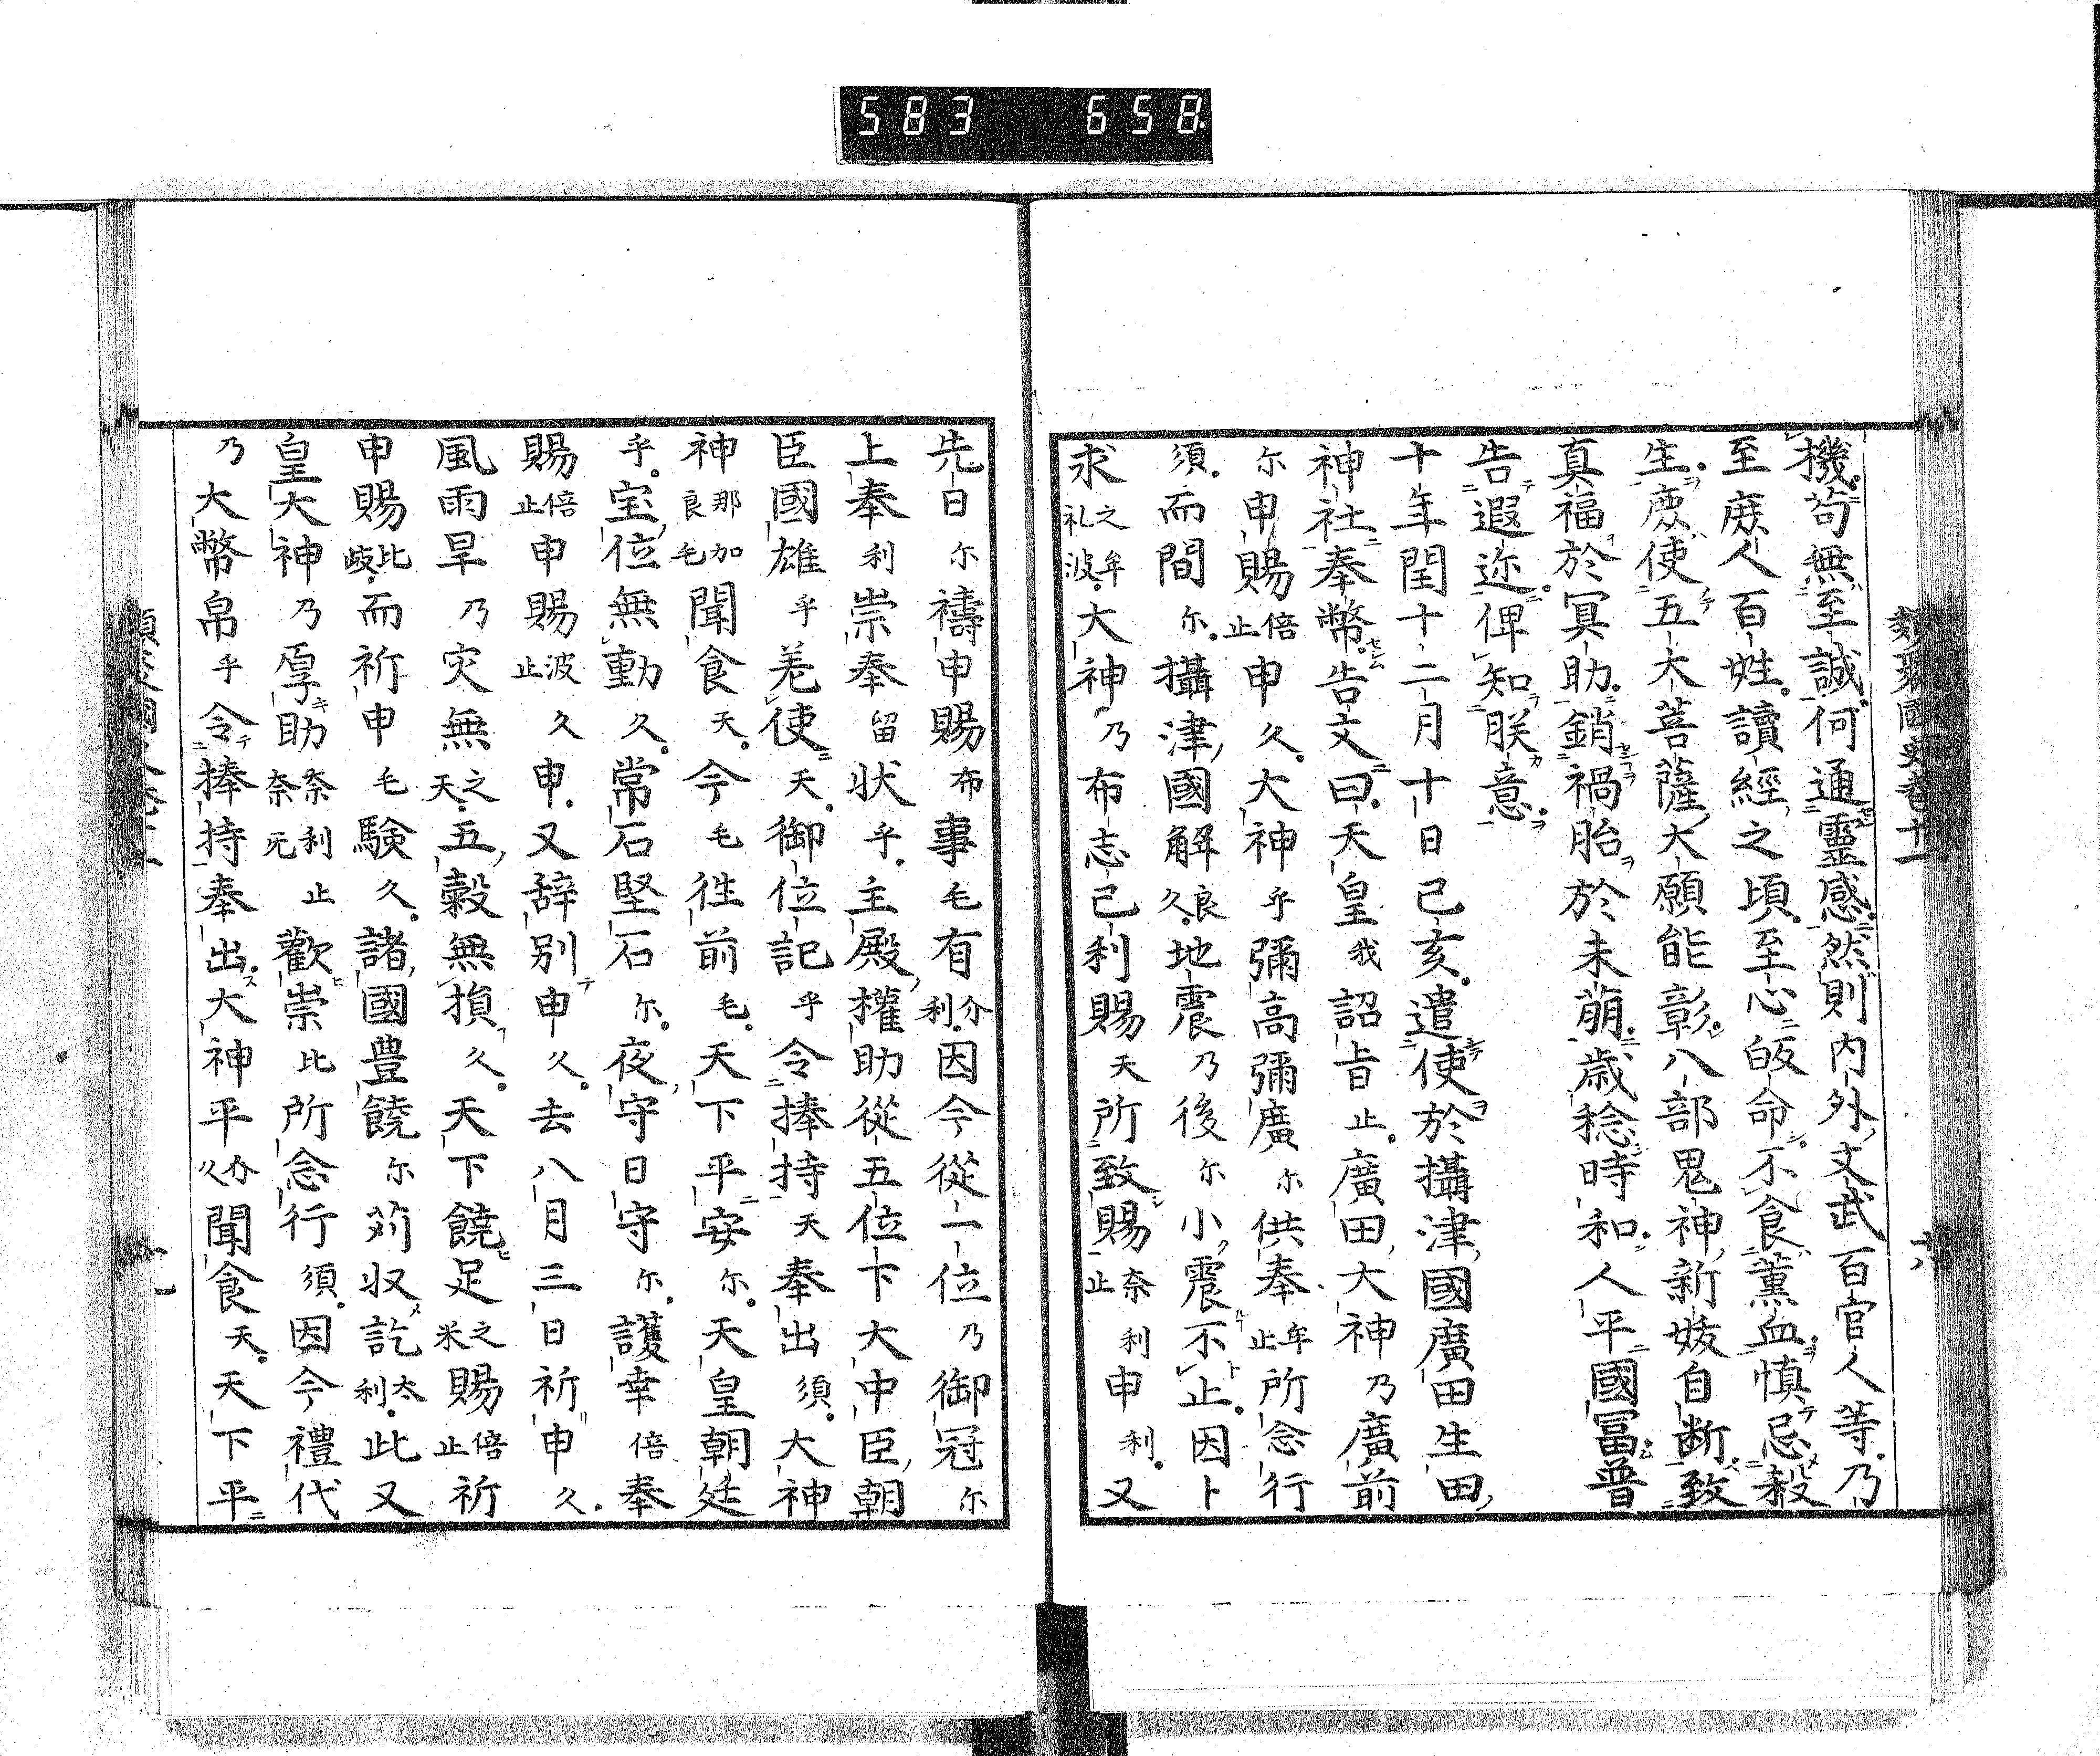 583 658
類聚國史卷十一 十八
機苟無至誠何通靈感然則内外文武百官人等乃
至庶人百姓讀經之頃至心皈命不食薫血慎忌殺
生庶使五大菩薩大願能彰八部鬼神新妭自断致
真福於冥助銷禍胎於未萠歳稔時和人平國冨普
告遐迩俾知朕意
十年閏十二月十日己亥遣使於攝津國廣田生田
神社奉幣告文曰天皇我詔旨止廣田大神乃廣前
尓申賜倍止申久大神乎彌高彌廣尓供奉牟止所念行
須而間尓攝津國解良久地震乃後尓小震不止因卜
求之牟礼波大神乃布志己利賜天所致賜奈利止申利又
先日尓禱申賜布事毛有介利因今從一位乃御冠尓
上奉利崇奉留状乎主殿權助從五位下大中臣朝
臣國雄乎差使天御位記乎令捧持天奉出須大神
神那加良毛聞食天今毛往前毛天下平安尓天皇朝廷
乎宝位無動久常石堅石尓夜守日守尓護幸倍奉
賜倍止申賜波止久申又辞別申久去八月三日祈申久
風雨旱乃灾無之天五穀無損久天下饒足之米賜倍止祈
申賜比岐而祈申毛驗久諸國豊饒尓苅収訖太利此又
皇大神乃厚助奈利奈毛止歡崇比所念行須因今禮代
乃大幣帛乎令捧持奉出大神平介久聞食天天下平